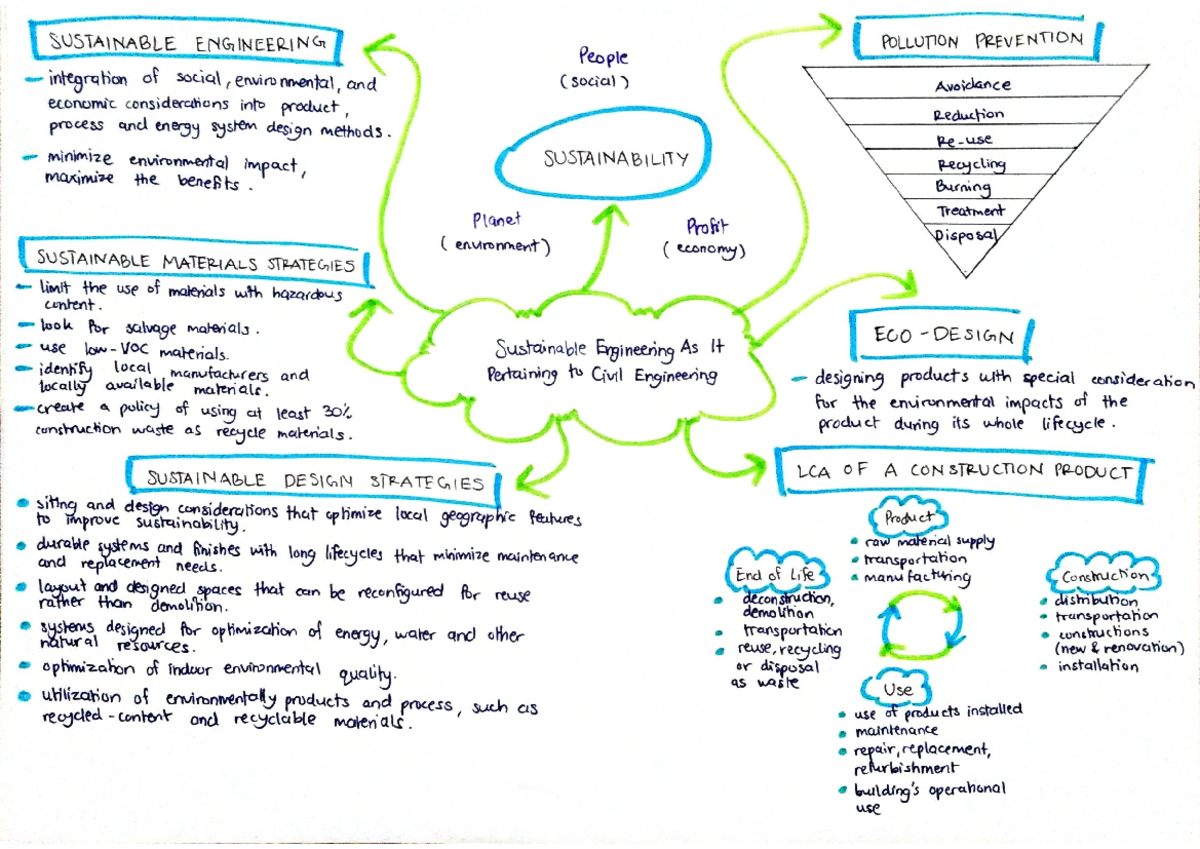 SUSTAINABLE ENGINEERING
integration of social, environmental, and
economic considerations into product,
process and energy system design methods.
minimize environmental impact,
maximize the benefits.
People
(social)
SUSTAINABILITY
Planet
(environment)
Profit
(economy)
POLLUTION PREVENTION
Avoidance
Reduction
Re-use
Recycling
Burning
Treatment
Disposal
SUSTAINABLE MATERIALS STRATEGIES
limit the use of materials with hazardous
content.
look for salvage materials.
use low-VOC materials.
identify local manufacturers and
locally available materials.
create a policy of using at least 30%
construction waste as recycle materials.
Sustainable Engineering As It
Pertaining to Civil Engineering
ECO-DESIGN
designing products with special consideration
for the environmental impacts of the
product during its whole lifecycle.
SUSTAINABLE DESIGN STRATEGIES
siting and design considerations that optimize local geographic features
to improve sustainability.
durable systems and finishes with long lifecycles that minimize maintenance
and replacement needs.
layout and designed spaces that can be reconfigured for reuse
rather than demolition.
systems designed for optimization of energy, water and other
natural resources.
optimization of indoor environmental quality.
utilization of environmentally products and process, such as
recycled-content and recyclable materials.
LCA OF A CONSTRUCTION PRODUCT
Product
raw material supply
transportation
manufacturing
Construction
distribution
transportation
constructions
(new & renovation)
installation
Use
use of products installed
maintenance
repair, replacement,
refurbishment
building's operational
use
End of Life
deconstruction,
demolition
transportation
reuse, recycling
or disposal
as waste